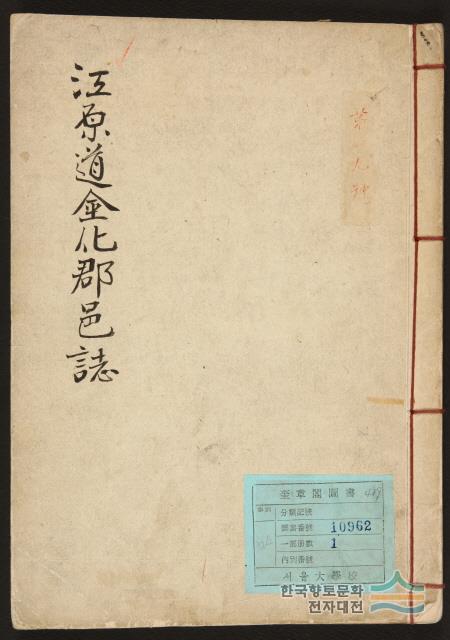 江原道金化郡邑誌
第 九 號
奎章閣圖書
分類記號
圖書番號 10962
一部册數 1
內別番號
서울大學校
한국향토문화
전자대전